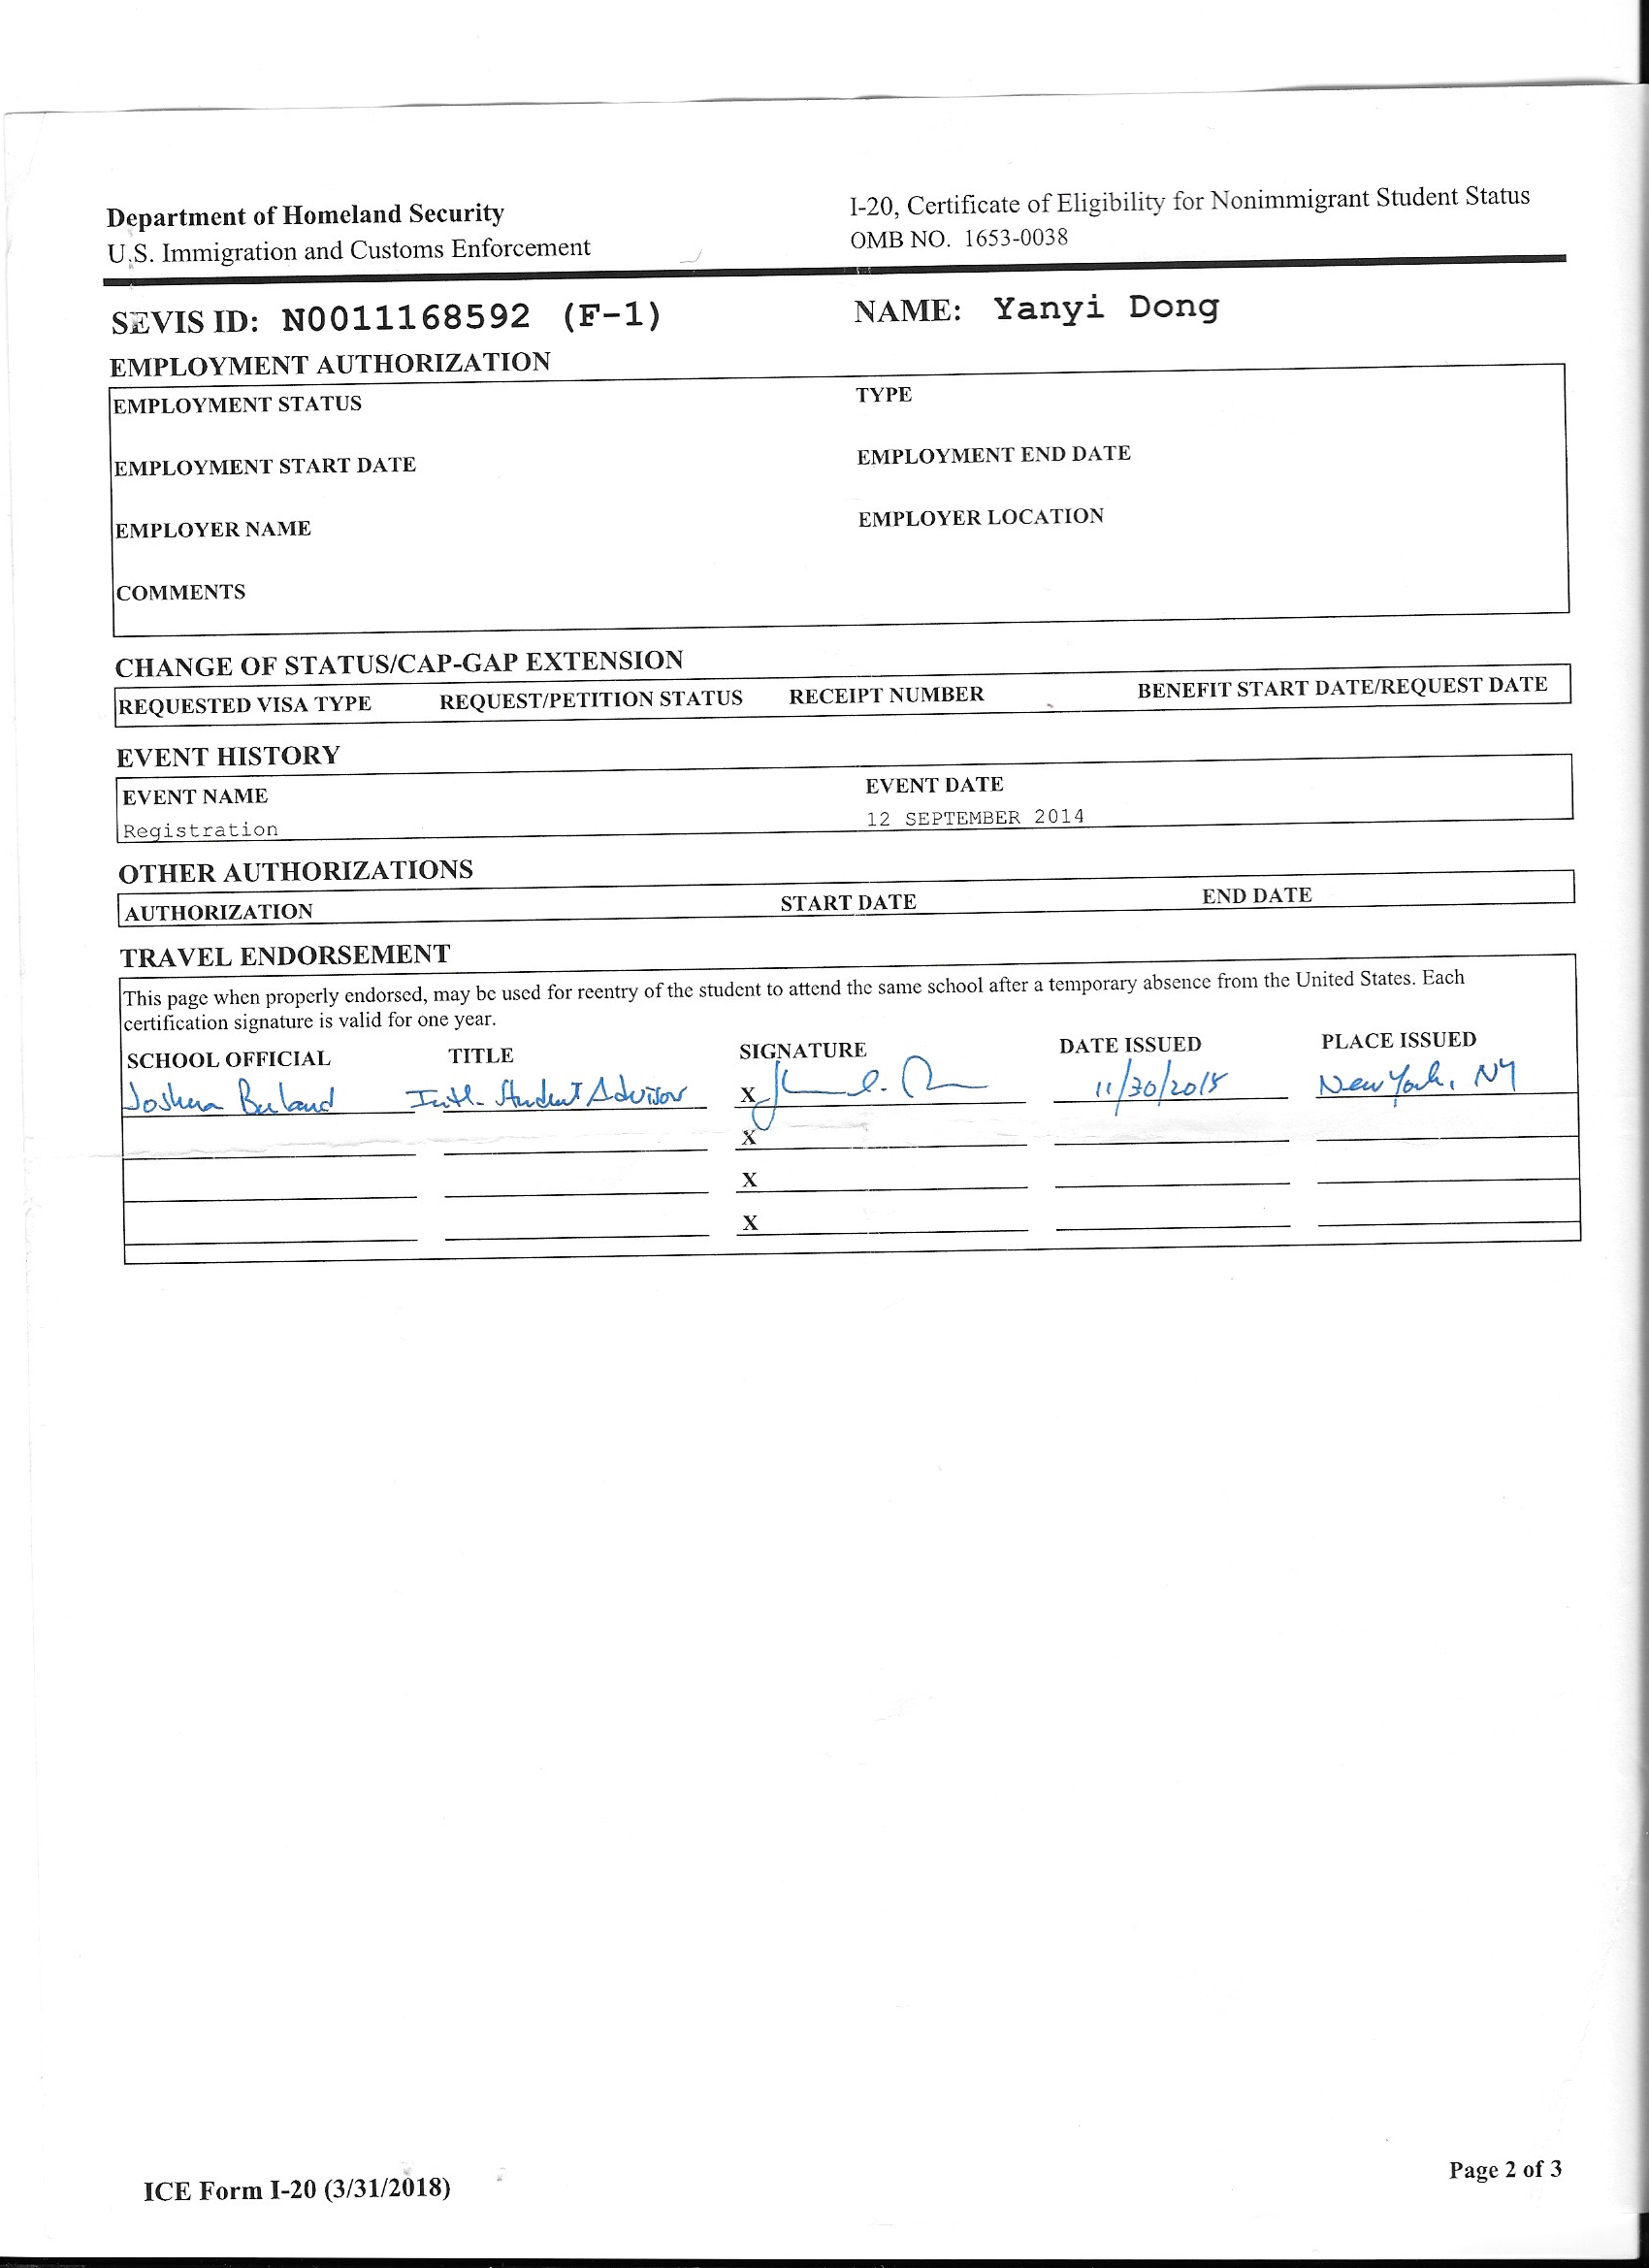 Department of Homeland Security
U.S. Immigration and Customs Enforcement
I-20, Certificate of Eligibility for Nonimmigrant Student Status
OMB NO. 1653-0038
SEVIS ID: N0011168592 (F-1) NAME: Yanyi Dong
EMPLOYMENT AUTHORIZATION
EMPLOYMENT STATUS TYPE
EMPLOYMENT START DATE EMPLOYMENT END DATE
EMPLOYER NAME EMPLOYER LOCATION
COMMENTS
CHANGE OF STATUS/CAP-GAP EXTENSION
REQUESTED VISA TYPE REQUEST/PETITION STATUS RECEIPT NUMBER BENEFIT START DATE/REQUEST DATE
EVENT HISTORY
EVENT NAME EVENT DATE
Registration 12 SEPTEMBER 2014
OTHER AUTHORIZATIONS
AUTHORIZATION START DATE END DATE
TRAVEL ENDORSEMENT
This page when properly endorsed, may be used for reentry of the student to attend the same school after a temporary absence from the United States. Each
certification signature is valid for one year.
SCHOOL OFFICIAL TITLE SIGNATURE DATE ISSUED PLACE ISSUED
Joshua Intl. Student Advisor X 11/30/2015 New York, NY
X
X
X
ICE Form I-20 (3/31/2018) Page 2 of 3